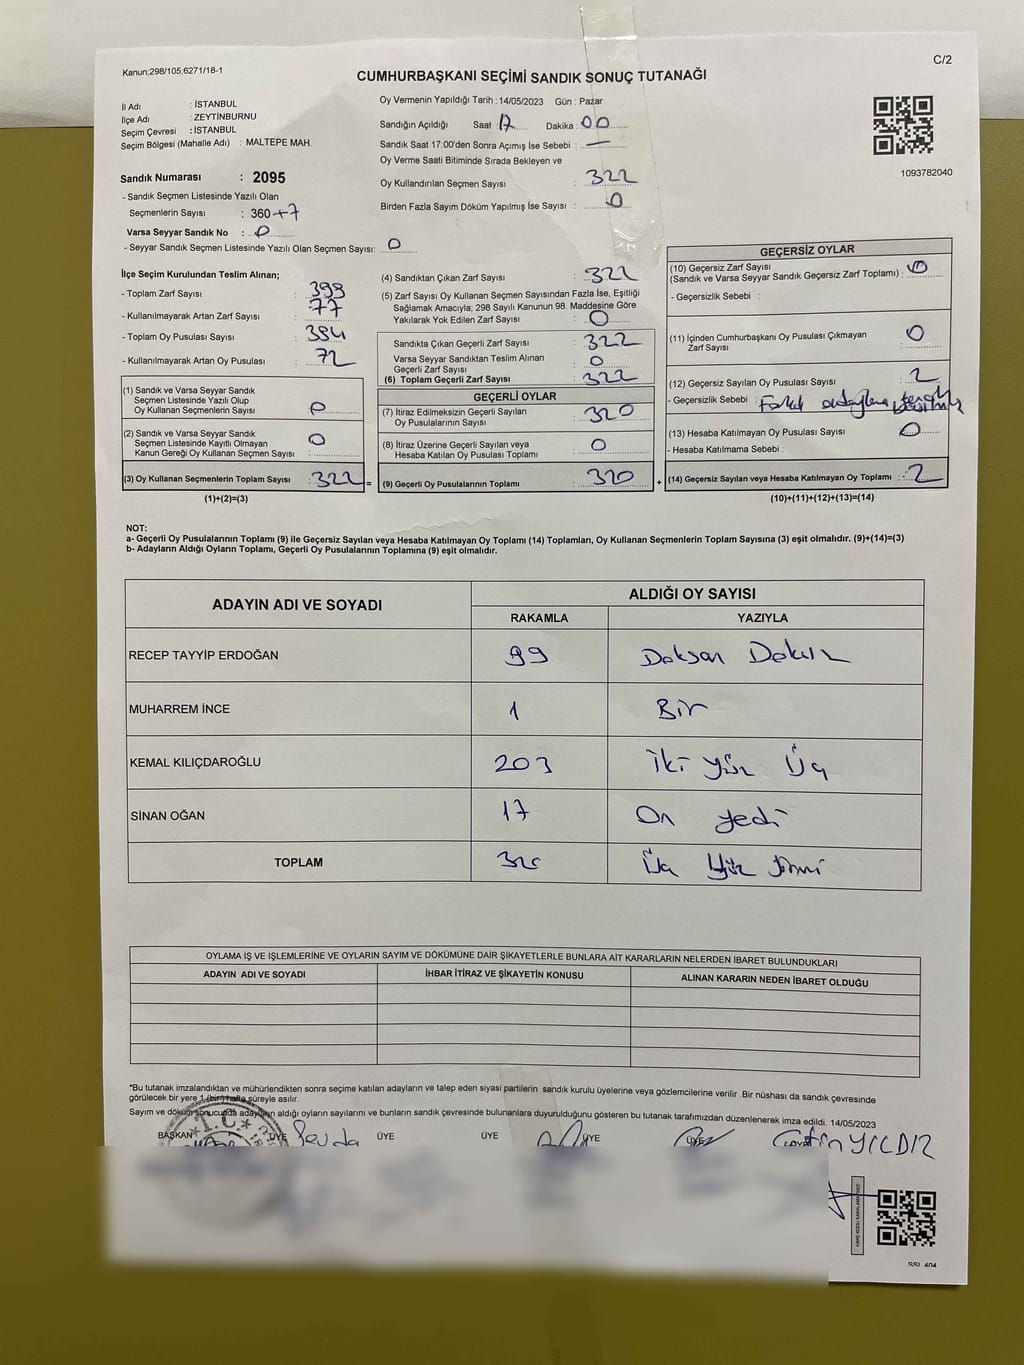 Kanun;298/105;6271/18-1
C/2
CUMHURBAŞKANI SEÇİMİ SANDIK SONUÇ TUTANAĞI
İl Adı : İSTANBUL
İlçe Adı : ZEYTİNBURNU
Seçim Çevresi : İSTANBUL
Seçim Bölgesi (Mahalle Adı) : MALTEPE MAH.
Oy Vermenin Yapıldığı Tarih : 14/05/2023 Gün : Pazar
Sandığın Açıldığı Saat : 17 Dakika : 00
Sandık Saat 17:00'den Sonra Açımış İse Sebebi : —
Oy Verme Saati Bitiminde Sırada Bekleyen ve
Oy Kullandırılan Seçmen Sayısı : 322
Birden Fazla Sayım Döküm Yapılmış İse Sayısı : 0
1093782040
Sandık Numarası : 2095
- Sandık Seçmen Listesinde Yazılı Olan
Seçmenlerin Sayısı : 360 +7
Varsa Seyyar Sandık No : 0
- Seyyar Sandık Seçmen Listesinde Yazılı Olan Seçmen Sayısı: 0
İlçe Seçim Kurulundan Teslim Alınan;
- Toplam Zarf Sayısı : 399
- Kullanılmayarak Artan Zarf Sayısı : 77
- Toplam Oy Pusulası Sayısı : 394
- Kullanılmayarak Artan Oy Pusulası : 72
(1) Sandık ve Varsa Seyyar Sandık
Seçmen Listesinde Yazılı Olup
Oy Kullanan Seçmenlerin Sayısı : 0
(2) Sandık ve Varsa Seyyar Sandık
Seçmen Listesinde Kayıtlı Olmayan
Kanun Gereği Oy Kullanan Seçmen Sayısı : 0
(3) Oy Kullanan Seçmenlerin Toplam Sayısı : 322 =
(1)+(2)=(3)
(4) Sandıktan Çıkan Zarf Sayısı : 322
(5) Zarf Sayısı Oy Kullanan Seçmen Sayısından Fazla İse, Eşitliği
Sağlamak Amacıyla; 298 Sayılı Kanunun 98. Maddesine Göre
Yakılarak Yok Edilen Zarf Sayısı : 0
Sandıkta Çıkan Geçerli Zarf Sayısı : 322
Varsa Seyyar Sandıktan Teslim Alınan
Geçerli Zarf Sayısı : 0
(6) Toplam Geçerli Zarf Sayısı : 322
GEÇERLİ OYLAR
(7) İtiraz Edilmeksizin Geçerli Sayılan
Oy Pusulalarının Sayısı : 320
(8) İtiraz Üzerine Geçerli Sayılan veya
Hesaba Katılan Oy Pusulası Toplamı : 0
(9) Geçerli Oy Pusulalarının Toplamı : 320 +
GEÇERSİZ OYLAR
(10) Geçersiz Zarf Sayısı
(Sandık ve Varsa Seyyar Sandık Geçersiz Zarf Toplamı) : 0
- Geçersizlik Sebebi :
(11) İçinden Cumhurbaşkanı Oy Pusulası Çıkmayan
Zarf Sayısı : 0
(12) Geçersiz Sayılan Oy Pusulası Sayısı : 2
- Geçersizlik Sebebi : Farklı adaylara
(13) Hesaba Katılmayan Oy Pusulası Sayısı : 0
- Hesaba Katılmama Sebebi :
(14) Geçersiz Sayılan veya Hesaba Katılmayan Oy Toplamı : 2
(10)+(11)+(12)+(13)=(14)
NOT:
a- Geçerli Oy Pusulalarının Toplamı (9) ile Geçersiz Sayılan veya Hesaba Katılmayan Oy Toplamı (14) Toplamları, Oy Kullanan Seçmenlerin Toplam Sayısına (3) eşit olmalıdır. (9)+(14)=(3)
b- Adayların Aldığı Oyların Toplamı, Geçerli Oy Pusulalarının Toplamına (9) eşit olmalıdır.
ADAYIN ADI VE SOYADI
ALDIĞI OY SAYISI
RAKAMLA YAZIYLA
RECEP TAYYİP ERDOĞAN 99 Doksan Dokuz
MUHARREM İNCE 1 Bir
KEMAL KILIÇDAROĞLU 203 İki yüz Üç
SİNAN OĞAN 17 On yedi
TOPLAM 320 Üç Yüz Yirmi
OYLAMA İŞ VE İŞLEMLERİNE VE OYLARIN SAYIM VE DÖKÜMÜNE DAİR ŞİKAYETLERLE BUNLARA AİT KARARLARIN NELERDEN İBARET BULUNDUKLARI
ADAYIN ADI VE SOYADI İHBAR İTİRAZ VE ŞİKAYETİN KONUSU ALINAN KARARIN NEDEN İBARET OLDUĞU
*Bu tutanak imzalandıktan ve mühürlendikten sonra seçime katılan adayların ve talep eden siyasi partilerin sandık kurulu üyelerine veya gözlemcilerine verilir .Bir nüshası da sandık çevresinde
görülecek bir yere 1 (bir) hafta süreyle asılır.
Sayım ve döküm sonucunda adayların aldığı oyların sayılarını ve bunların sandık çevresinde bulunanlara duyurulduğunu gösteren bu tutanak tarafımızdan düzenlenerek imza edildi. 14/05/2023
BAŞKAN ÜYE Sevda ÜYE ÜYE ÜYE ÜYE YILDIZ
T.C.
SSI_404